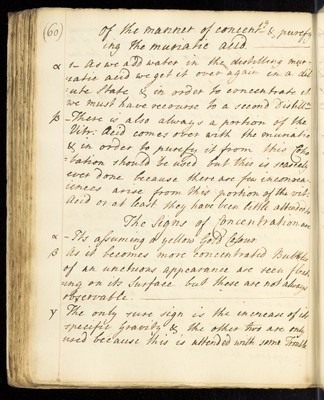 (60) of the manner of concentg & purefy
ing the muriatic acid.
α 1- As we add water in the distilling mur-
iatic acid we get it over again in a dil
ute State, & in order to concentrate it
we must have recourse to a second Distilln
β - There is also always a portion of the
Vitr: Acid comes over with the muriatic
& in order to purefy it from this
-bation should be used but this is scarcely
ever done because there are few inconven
iences arise from this portion of the vitr:
Acid or at least they have been little attended to
The Signs of Concentration are
α - Its assuming a yellow Gold Colour
β as it becomes more concentrated Bubbles
of an unctuous appearance are seen float
ing on its surface but these are not always
observable.
γ The only sure sign is the increase of its
specific Gravity & the other two are only
used because this is attended with some Trouble